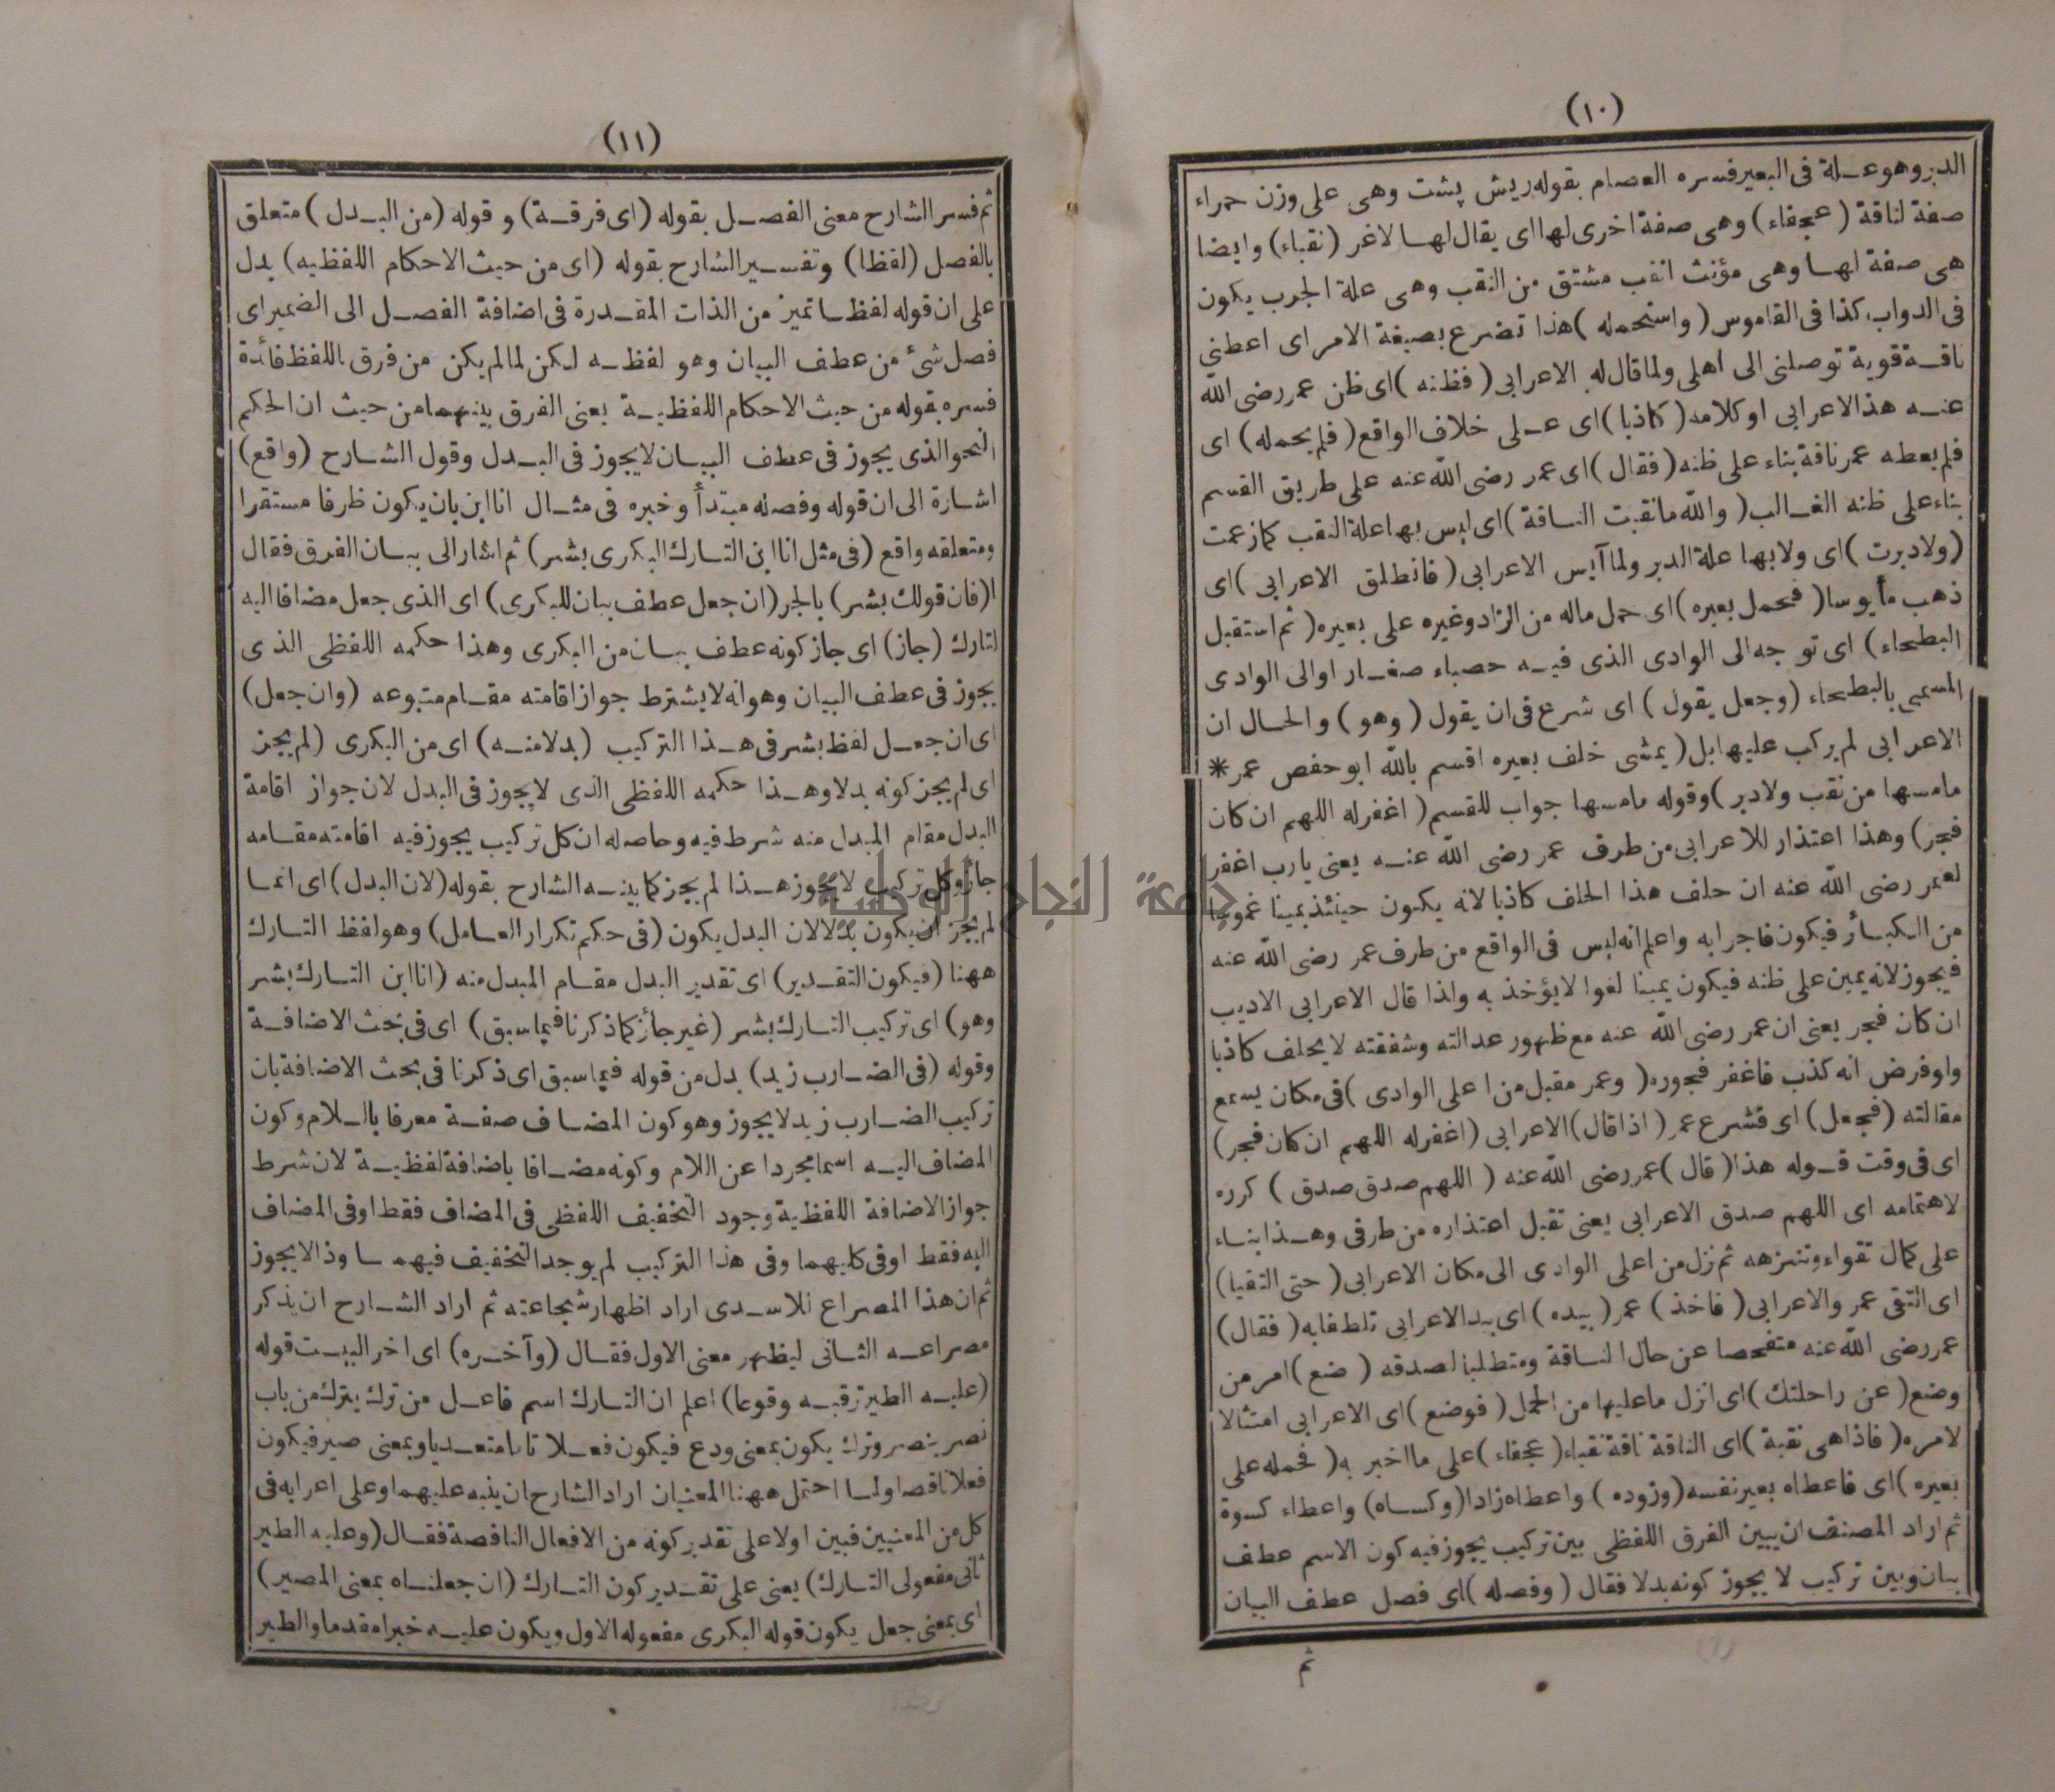 (١٠)
الدبر وهو علة فى البعير فسره العصام بقوله ريش پشت وهى على وزن حمراء
صفة لناقة ( عجفاء ) وهى صفة اخرى لها اى يقال لها لاغر ( نقباء ) وايضا
هى صفة لها وهى مؤنث انقب مشتق من النقب وهى علة الجرب يكون
فى الدواب كذا فى القاموس ( واستحمله ) هذا تضرع بصيغة الامر اى اعطنى
ناقة قوية توصلنى الى اهلى ولما قال له الاعرابى ( فظنه ) اى ظن عمر رضى الله
عنه هذ الاعرابى او كلامه ( كاذبا ) اى على خلاف الواقع ( فلم يحمله ) اى
فلم يعطه عمر ناقة بناء على ظنه ( فقال ) اى عمر رضى الله عنه على طريق القسم
بناء على ظنه الغالب ( والله ما نقبت الناقة ) اى ليس بها علة النقب كما زعمت
( ولا دبرت ) اى ولا بها علة الدبر ولما آيس الاعرابى ( فانطلق الاعرابى ) اى
ذهب مأيوسا ( فحمل بعيره ) اى حمل ماله من الزاد وغيره على بعيره ( ثم استقبل
البطحاء ) اى توجه الى الوادى الذى فيه حصباء صغار او الى الوادى
المسمى بالبطحاء ( وجعل يقول ) اى شرع فى ان يقول ( وهو ) والحال ان
الاعرابى لم يركب عليها بل ( يمشى خلف بعيره اقسم بالله ابو حفص عمر *
ما مسها من نقب ولا دبر ) وقوله ما مسها جواب للقسم ( اغفر له اللهم ان كان
فجر ) وهذا اعتذار للاعرابى من طرف عمر رضى الله عنه يعنى يا رب اغفر
لعمر رضى الله عنه ان حلف هذا الحلف كاذبا لانه يكون حينئذ يمينا غموسا
من الكبائر فيكون فاجرا به واعلم انه ليس فى الواقع من طرف عمر رضى الله عنه
فيجوز لانه يمين على ظنه فيكون يمينا لغوا لا يؤخذ به ولذا قال الاعرابى الاديب
ان كان فجر يعنى ان عمر رضى الله عنه مع ظهور عدالته وشفقته لا يحلف كاذبا
ولو فرض انه كذب فاغفر فجوره ( وعمر مقبل من اعلى الوادى ) فى مكان يسمع
مقالته ( فجعل ) اى فشرع عمر ( اذا قال ) الاعرابى ( اغفر له اللهم ان كان فجر )
اى فى وقت قوله هذا ( قال ) عمر رضى الله عنه ( اللهم صدق صدق ) كرره
لاهتمامه اى اللهم صدق الاعرابى يعنى تقبل اعتذاره من طرفى وهذا بناء
على كمال تقواه وتنزهه ثم نزل من اعلى الوادى الى مكان الاعرابى ( حتى التقيا )
اى التقى عمر والاعرابى ( فاخذ ) عمر ( بيده ) اى بيد الاعرابى تلطفا به ( فقال )
عمر رضى الله عنه متفحصا عن حال الناقة ومتطلبا لصدقه ( ضع ) امر من
وضع ( عن راحلتك ) اى انزل ما عليها من الحمل ( فوضع ) اى الاعرابى امتثالا
لامره ( فاذا هى نقبة ) اى الناقة ناقة نقباء ( عجفاء ) على ما اخبر به ( فحمله على
بعيره ) اى فاعطاه بعير نفسه ( وزوده ) واعطاه زادا ( وكساه ) واعطاء كسوة
ثم اراد المصنف ان يبين الفرق اللفظى بين تركيب يجوز فيه كون الاسم عطف
بيان وبين تركيب لا يجوز كونه بدلا فقال ( وفصله ) اى فصل عطف البيان
ثم
(١١)
ثم فسر الشارح معنى الفصل بقوله ( اى فرقة ) وقوله ( من البدل ) متعلق
بالفصل ( لفظا ) وتفسير الشارح بقوله ( اى من حيث الاحكام اللفظيه ) يدل
على ان قوله لفظا تميز من الذات المقدرة فى اضافة الفصل الى الضمير اى
فصل شئ من عطف البيان وهو لفظه لكن لما لم يكن من فرق اللفظ فائدة
فسره بقوله من حيث الاحكام اللفظية يعنى الفرق بينهما من حيث ان الحكم
النحو الذى يجوز فى عطف البيان لا يجوز فى البدل وقول الشارح ( واقع )
اشارة الى ان قوله وفصله مبتدأ وخبره فى مثال انا ابن بان يكون ظرفا مستقرا
ومتعلقه واقع ( فى مثل انا ابن التارك البكرى بشر ) ثم اشار الى بيان الفرق فقال
( فان قولك بشر ) بالجر ( ان جعل عطف بيان للبكرى ) اى الذى جعل مضافا اليه
لتارك ( جاز ) اى جاز كونه عطف بيان من البكرى وهذا حكمه اللفظى الذى
يجوز فى عطف البيان وهو انه لا يشترط جواز اقامته مقام متبوعه ( وان جعل )
اى ان جعل لفظ بشر فى هذا التركيب ( بدلا منه ) اى من البكرى ( لم يجز
اى لم يجز كونه بدلا وهذا حكمه اللفظى الذى لا يجوز فى البدل لان جواز اقامة
البدل مقام المبدل منه شرط فيه وحاصله ان كل تركيب يجوز فيه اقامته مقامه
جاز وكل تركيب لا يجوز هذا لم يجز كما بينه الشارح بقوله ( لان البدل ) اى انما
لم يجز ان يكون بدلا لان البدل يكون ( فى حكم تكرار العامل ) وهو لفظ التارك
ههنا ( فيكون التقدير ) اى تقدير البدل مقام المبدل منه ( انا ابن التارك بشر
وهو ) اى تركيب التارك بشر ( غير جائز كما ذكرنا فيما سبق ) اى فى بحث الاضافة
وقوله ( فى الضارب زيد ) بدل من قوله فيما سبق اى ذكرنا فى بحث الاضافة بان
تركيب الضارب زيد لا يجوز وهو كون المضاف صفة معرفا باللام وكون
المضاف اليه اسما مجردا عن اللام وكونه مضافا باضافة لفظية لان شرط
جواز الاضافة اللفظية وجود التخفيف اللفظى فى المضاف فقط او فى المضاف
اليه فقط او فى كليهما وفى هذا التركيب لم يوجد التخفيف فيهما وذا لا يجوز
ثم ان هذا المصراع للاسدى اراد اظهار شجاعته ثم اراد الشارح ان يذكر
مصراعه الثانى ليظهر معنى الاول فقال ( وآخره ) اى اخر البيت قوله
( عليه الطير ترقبه وقوعا ) اعلم ان التارك اسم فاعل من ترك يترك من باب
نصر ينصر وترك يكون بمعنى ودع فيكون فعلا تاما متعديا وبمعنى صير فيكون
فعلا ناقصا ولما احتمل ههنا المعنيان اراد الشارح ان ينبه عليهما وعلى اعرابه فى
كل من المعنيين فبين اولا على تقدير كونه من الافعال الناقصة فقال ( وعليه الطير
ثانى مفعولى التارك ) يعنى على تقدير كون التارك ( ان جعلناه بمعنى المصير )
اى بمعنى جعل يكون قوله البكرى مفعوله الاول ويكون عليه خبرا مقدما والطير
جامعة النجاح الوطنية